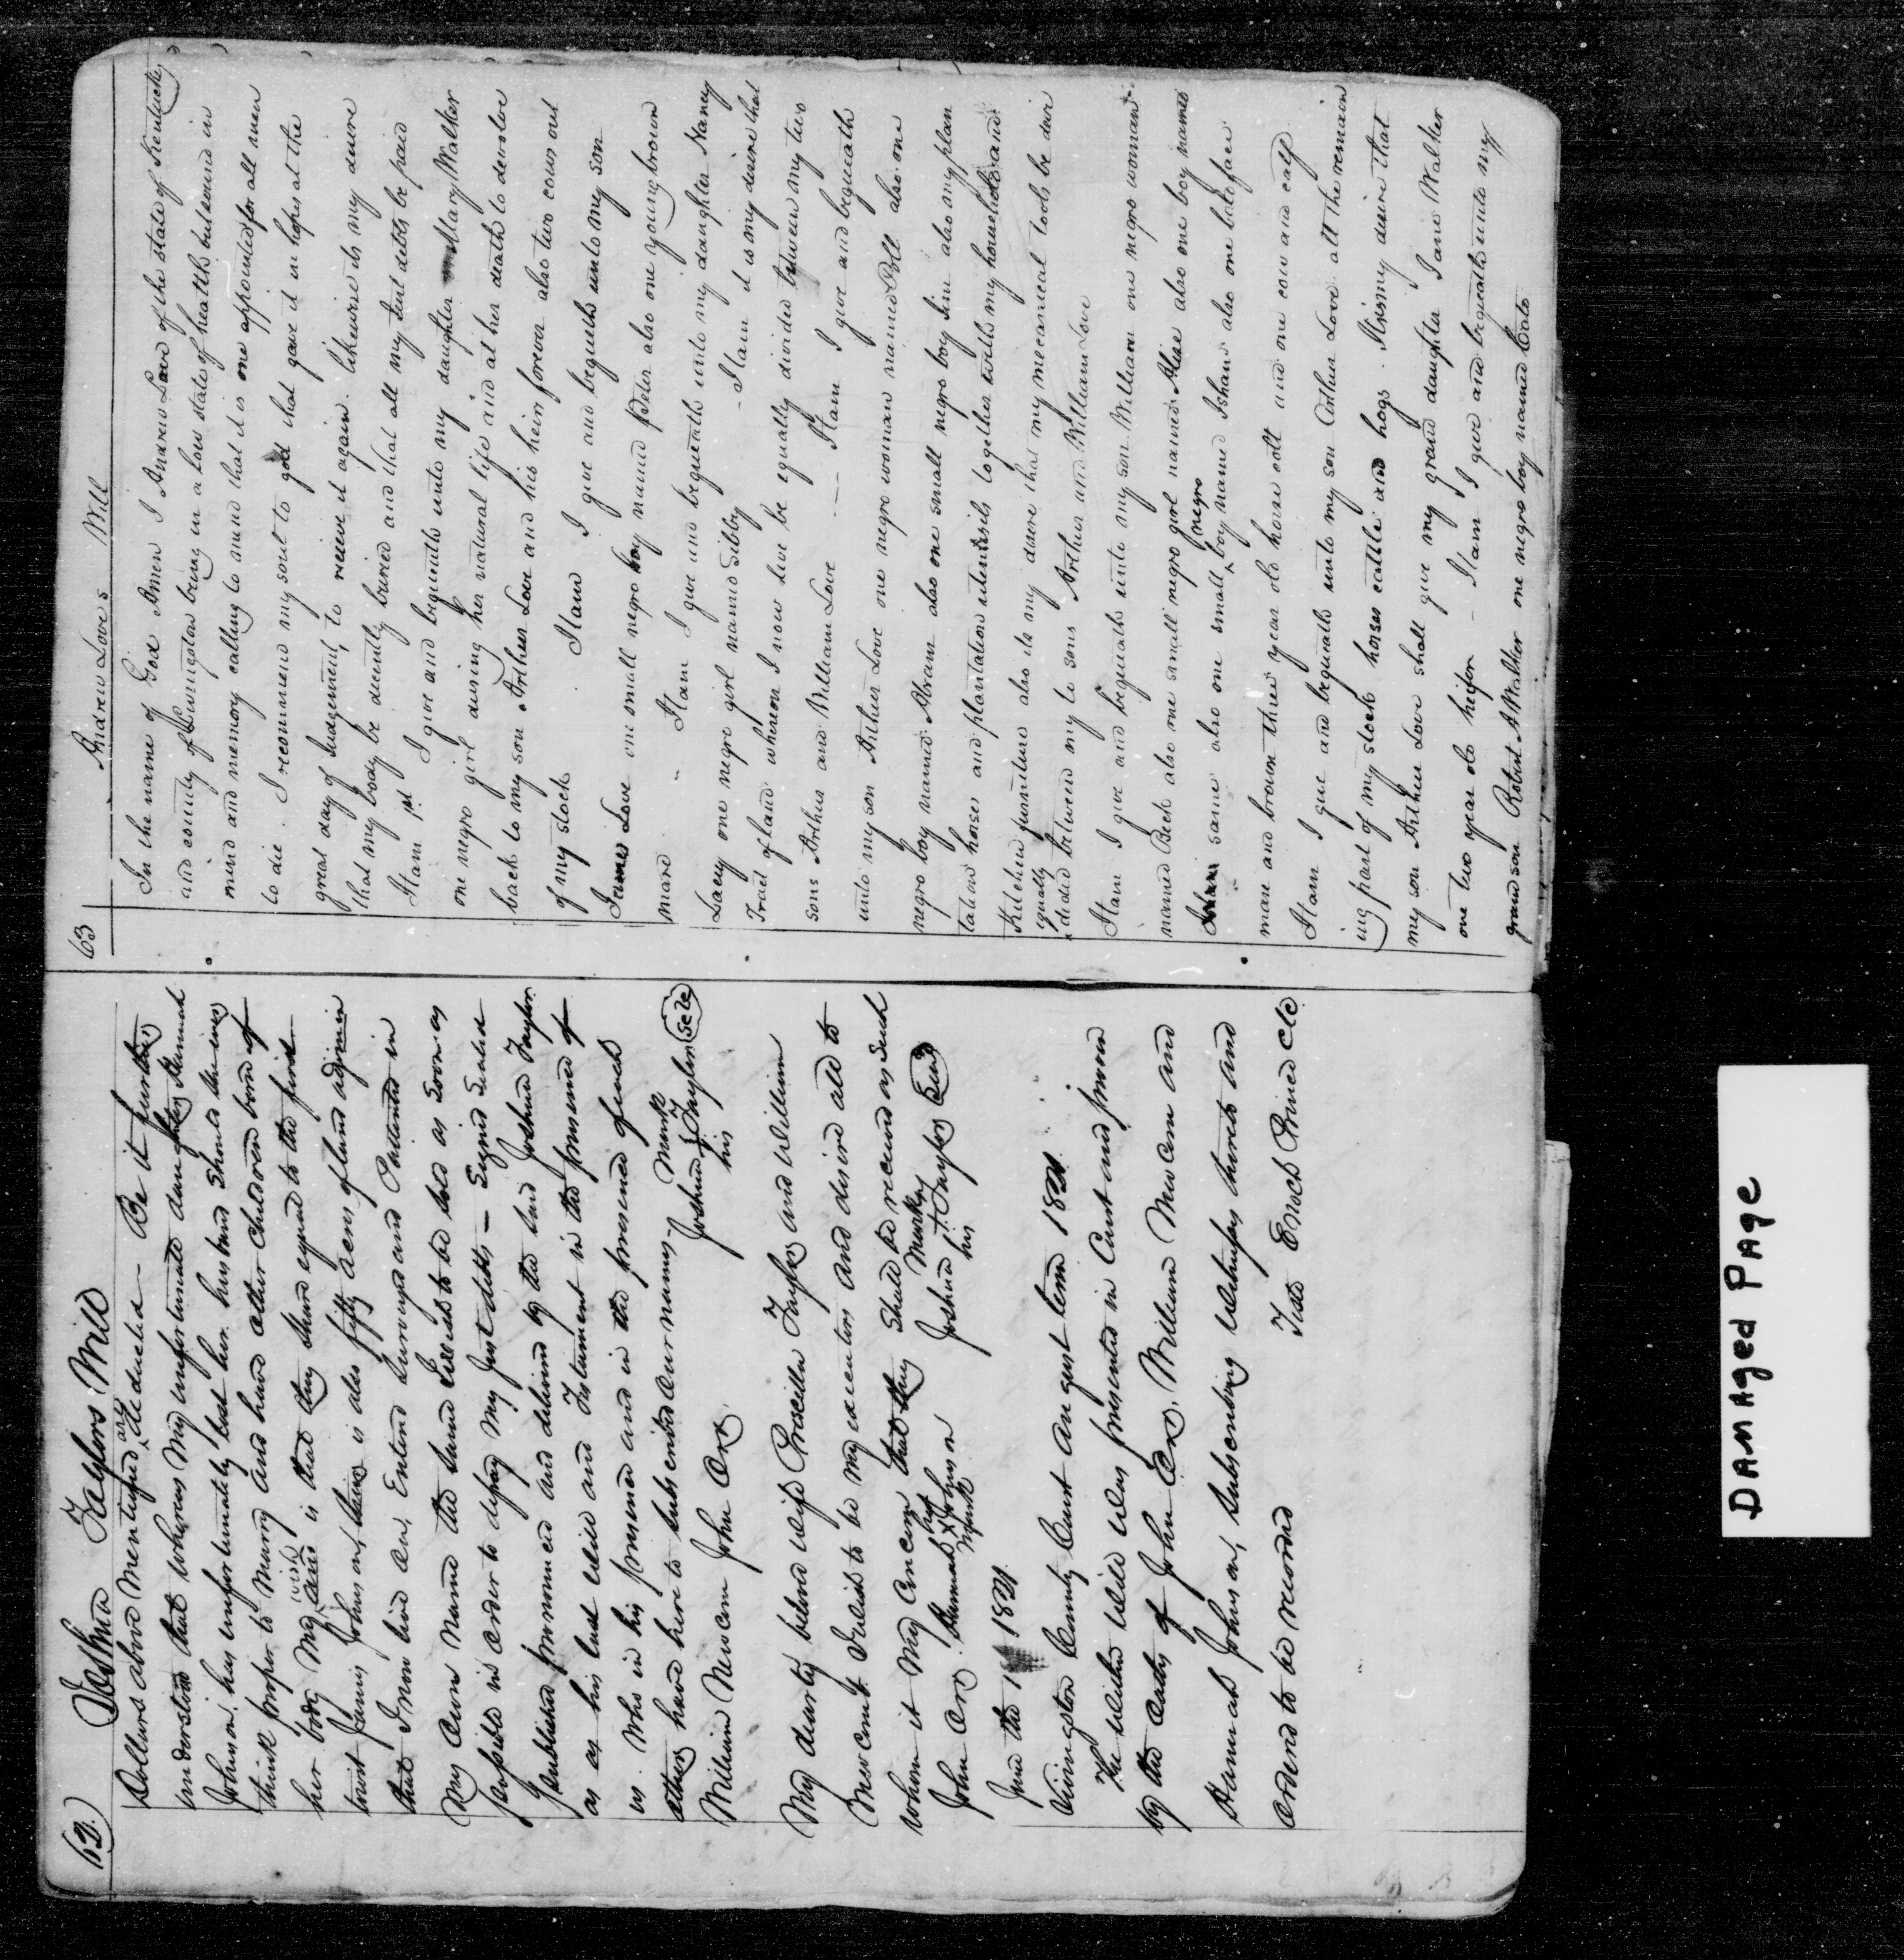 62) Joshua Taylors Will
Dollars above Mentioned are deducted - Be it further
understood that whereas My unfortunate daughter Hannah
Johnson, has unfortunately lost her husband Should she ever
think proper to Marry and have other children born of
her body My wish is that they share equal to the first
James Johnson, is also fifty acres of land
that I now live on, Entered Surveyed and Pattented in
My own Name the land I wish to be sold as Soon as
possible in order to defray My Just debts - Signed Sealed
published pronounced and delivered by the said Joshua Taylor
as as his last will and Testament in the presence of
us. Who in his presence and in the presence of each
other have here to subscribed our names -
William Newcom John Orr. Joshua Taylor his Mark Seal
My dearly beloved wife Priscilla Taylor and William
Newcom I wish to be my executors and desire all to
whom it May Concern that they Should be received as such
John Orr. Hannah her x Mark Johnson Joshua his + Mark Taylor Seal
June the 1821
Livingston County Court August term 1821.
The within Will Was presented in Court and proven
by the oaths of John Orr, William Newcom and
Hannah Johnson, Subscribing Witnesses thereto and
ordered to be recorded Teste Enoch Prince Clc
63 Andrew Loves Will
In the name of God Amen I Andrew Love of the state of Kentucky
and county of Livingston being in a low state of health but sound in
mind and memory calling to mind that it is one appointed for all men
to die I recommend my soul to god that gave it in hopes at the
great day of Judgement, to receive it again. likewise its my desire
that my body be decently buried and that all my just debts be paid
Itam 1st I give and bequeath unto my daughter Mary Walker
one negro girl during her natural life and at her death to devolve
back to my son Arthur Love and his heirs forever also two cows out
of my stock Itam I give and bequeath unto my son
James Love one small negro boy named Peter also one young brown
mare Itam I give and bequeath unto my daughter Nancy
Lacey one negro girl named Sibby - Itam it is my desire that
Tract of land whereon I now live be equally divided between my two
sons Arthur and William Love - Itam I give and bequeath
unto my son Arthur Love one negro woman named Poll also one
negro boy named Abram also one small negro boy Sim also my plan
tation horses and plantation utentsils together with my household and
Kitchen furniture also its my desire that my mecanical tools be devi
equally dided between my to sons Arthur and William Love
Itam I give and bequeath unto my son William one negro woman
named Beck also one small negro girl named Alise also one boy named
same also one small negro boy named Isham also one bald face
mare and brown three year old horse colt and one cow and calf
Itam I give and bequeath unto my son Arthur Love all the remain
ing part of my stock horses cattle and hogs. It is my desire that
my son Arthur Love shall give my grand daughter Jane Walker
one two year old heifer - Itam I give and bequeath unto my
grand son Robert A Walker one negro boy named Cato
DAMAGED PAGE